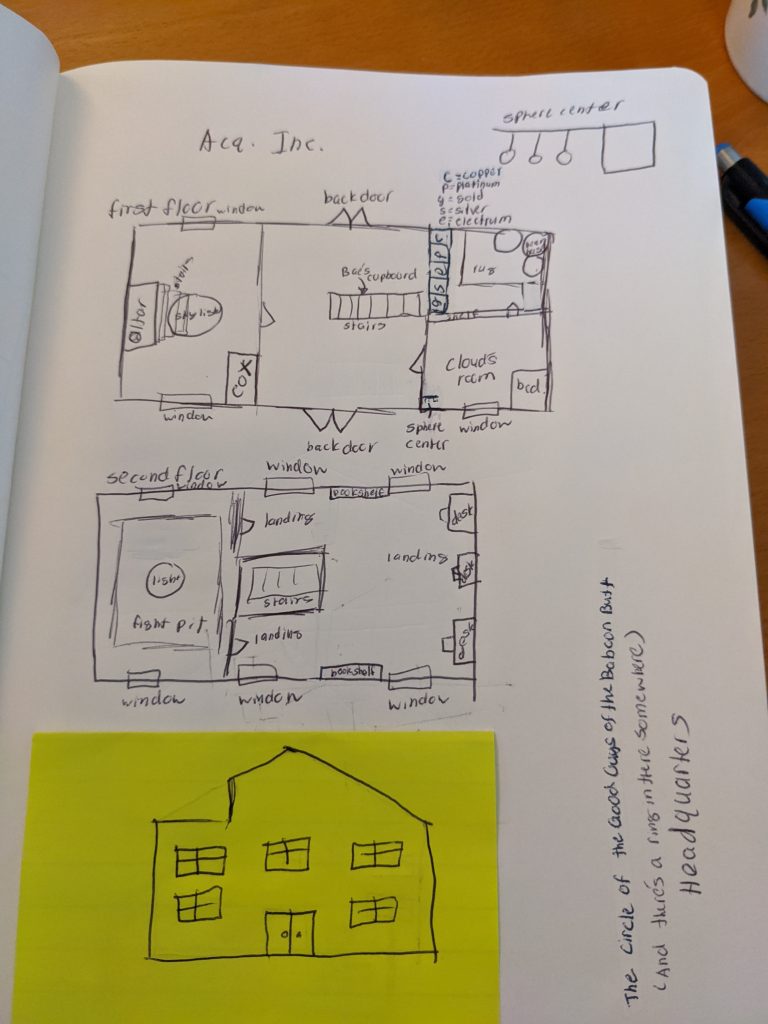 sphere center
Acq. Inc.
c=copper
p=platinum
g=gold
s=silver
e=electrum
back door
first floor
window
c
p
e
s
g
rug
Bae's
cupboard
stairs
stairs
skylight
Altar
COX
Cloud's
room
bed
window
back door
sphere
center
window
second floor
window
window
window
bookshelf
landing
desk
landing
light
stairs
fight pit
landing
desk
bookshelf
window
window
window
The Circle of the Good Guys of the Baboon Butt
(And there's a ring in there somewhere)
Headquarters